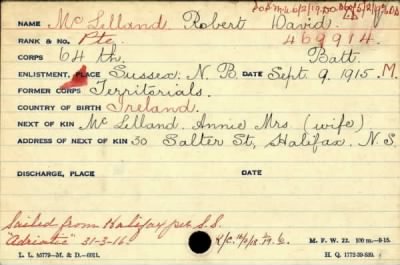 NAME Mc Lelland Robert David.
RANK & No. Pte. 469914.
CORPS 64 th. Batt.
ENLISTMENT, PLACE Sussex. N. B. DATE Sept. 9. 1915. M.
FORMER CORPS Territorials.
COUNTRY OF BIRTH Ireland.
NEXT OF KIN Mc Lelland Annie Mrs (wife)
ADDRESS OF NEXT OF KIN 30 Salter St, Halifax. N.S.
DISCHARGE, PLACE DATE
Sailed from Halifax per S.S.
"Adriatic" 31-3-16.
L. L. 45779—M. & D.—6011.
M. F. W. 22. 100 m.—9-15.
H. Q. 1772-39-839.